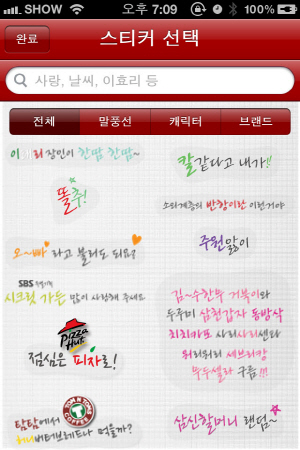 SHOW 오후 7:09 100%
완료
스티커 선택
사랑, 날씨, 이효리 등
전체 말풍선 캐릭터 브랜드
장인이 한땀 한땀~
칼같다고 내가!!
똘추!
소외계층의 반항이란 이런거야
오~빠 라고 불러도 되요?
주원앓이
SBS
시크릿 가든 많이 사랑해 주세요
김~수한무 거북이와
두루미 삼천갑자 동방삭
치치카포 사리사리센타
워리워리 세브리캉
무두셀라 구름!!!
Pizza Hut
점심은 피자로!
TOM N TOMS COFFEE
탐탐에서
허니버터브레드나 먹을까?
삼신할머니 랜덤~